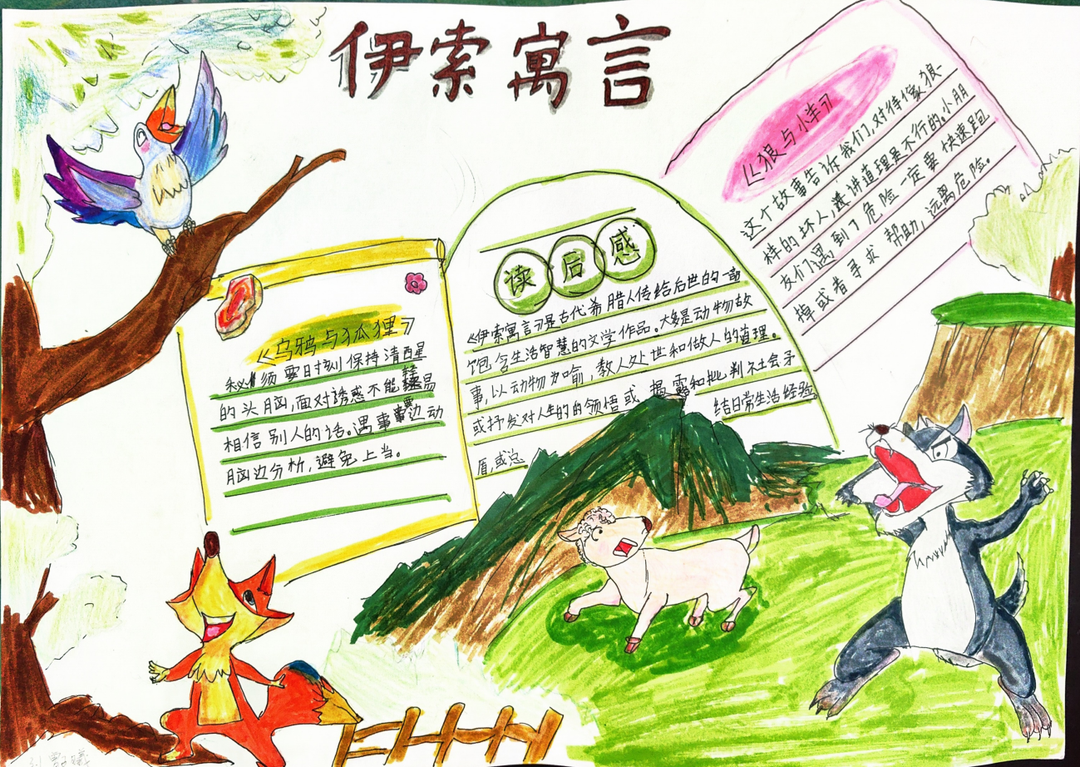 伊索寓言
《乌鸦与狐狸》
须要时刻保持清醒
的头脑,面对诱惑不能轻易
相信别人的话。遇事要边动
脑边分析,避免上当。
读后感
《伊索寓言》是古代希腊人传给后世的一部
饱含生活智慧的文学作品。大多是动物故
事,以动物为喻,教人处世和做人的真理。
或抒发对人生的的领悟或 揭露和批判社会矛
盾,或总 结日常生活经验
《狼与小羊》
这个故事告诉我们,对待像狼一
样的坏人,讲道理是不行的。小朋
友们遇到了危险一定要快速跑
掉或者寻求 帮助,远离危险。